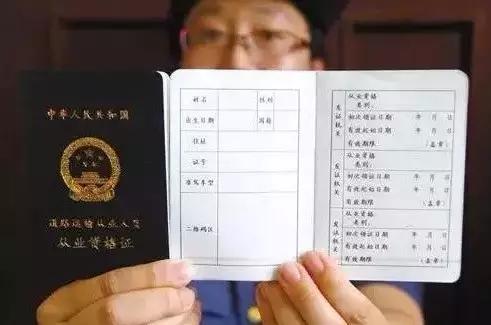 中华人民共和国
道路运输从业人员
从业资格证
姓名 性别
出生日期 国籍
住址
证号
准驾车型
二维码区
发证机关
从业资格
类别:
初次领证日期 年 月 日
有效起始日期 年 月 日
有效期限 (盖章)
发证机关
从业资格
类别:
初次领证日期 年 月 日
有效起始日期 年 月 日
有效期限 (盖章)
发证机关
从业资格
类别:
初次领证日期 年 月 日
有效起始日期 年 月 日
有效期限 (盖章)